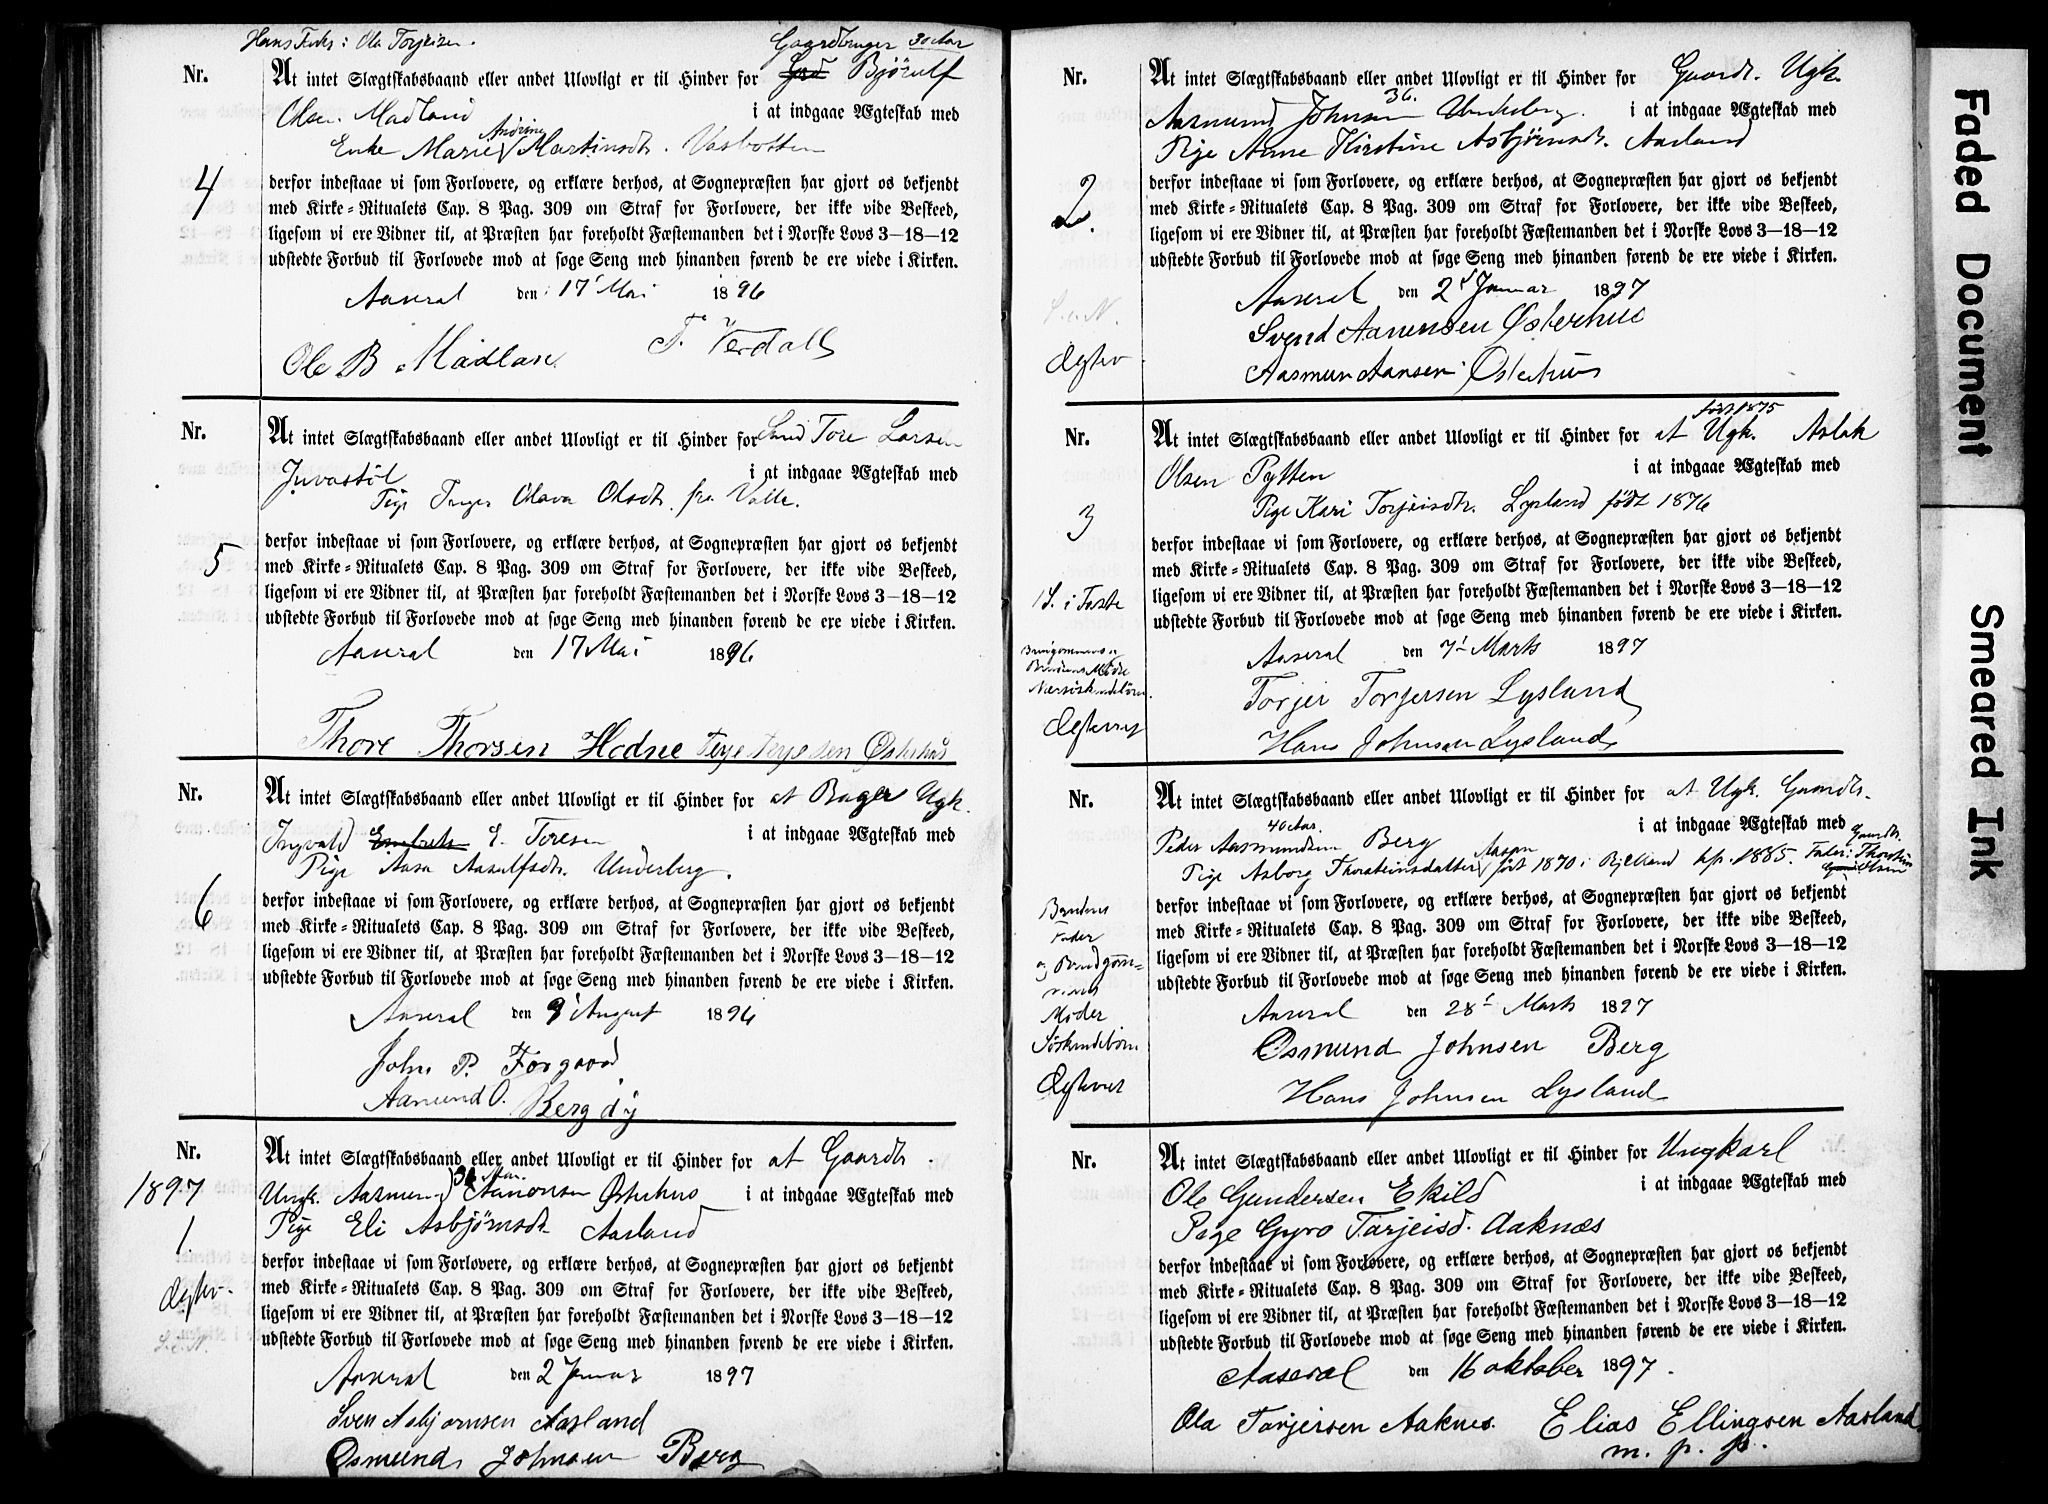 Hans Fuks: Ola Torjeisen.
Gaardbruger 30 Aar
Nr.
At intet Slægtskabsbaand eller andet Ulovligt er til Hinder for Bjørulf
Olsen Madland i at indgaae Ægteskab med
Enke Marie Andrine Martinsdtr. Vasbotten
4
derfor indestaae vi som Forlovere, og erklære derhos, at Sognepræsten har gjort os bekjendt
med Kirke-Ritualets Cap. 8 Pag. 309 om Straf for Forlovere, der ikke vide Beskeed,
ligesom vi ere Vidner til, at Præsten har foreholdt Fæstemanden det i Norske Lovs 3—18—12
udstedte Forbud til Forlovede mod at søge Seng med hinanden førend de ere viede i Kirken.
Aaseral den 17' Mai 1896
Ole B Madland T. Verdall
Nr.
At intet Slægtskabsbaand eller andet Ulovligt er til Hinder for Tore Larsen
Juvastøl i at indgaae Ægteskab med
Pige Inger Olava Olsdtr. fra Valle.
5
derfor indestaae vi som Forlovere, og erklære derhos, at Sognepræsten har gjort os bekjendt
med Kirke-Ritualets Cap. 8 Pag. 309 om Straf for Forlovere, der ikke vide Beskeed,
ligesom vi ere Vidner til, at Præsten har foreholdt Fæstemanden det i Norske Lovs 3—18—12
udstedte Forbud til Forlovede mod at søge Seng med hinanden førend de ere viede i Kirken.
Aaseral den 17 Mai 1896
Thore Thorsen Hodne Terje Terjesen Østerhus
Nr.
At intet Slægtskabsbaand eller andet Ulovligt er til Hinder for at Bager Ugk.
Ingvald E. Toresen i at indgaae Ægteskab med
Pige Aasa Aasulfsdtr. Underberg.
6
derfor indestaae vi som Forlovere, og erklære derhos, at Sognepræsten har gjort os bekjendt
med Kirke-Ritualets Cap. 8 Pag. 309 om Straf for Forlovere, der ikke vide Beskeed,
ligesom vi ere Vidner til, at Præsten har foreholdt Fæstemanden det i Norske Lovs 3—18—12
udstedte Forbud til Forlovede mod at søge Seng med hinanden førend de ere viede i Kirken.
Aaseral den 9' August 1896
John P. Forgaard
Aamund O. Berg
Nr.
At intet Slægtskabsbaand eller andet Ulovligt er til Hinder for at Gaardbr.
1897
Ungk. Aasmund Aanonsen Østerhus i at indgaae Ægteskab med
Pige Eli Asbjørnsdtr Aasland
1.
derfor indestaae vi som Forlovere, og erklære derhos, at Sognepræsten har gjort os bekjendt
med Kirke-Ritualets Cap. 8 Pag. 309 om Straf for Forlovere, der ikke vide Beskeed,
ligesom vi ere Vidner til, at Præsten har foreholdt Fæstemanden det i Norske Lovs 3—18—12
udstedte Forbud til Forlovede mod at søge Seng med hinanden førend de ere viede i Kirken.
Aaseral den 2 Januar 1897
Sven Asbjornsen Aasland
Osmund Johnsen Berg
Nr.
At intet Slægtskabsbaand eller andet Ulovligt er til Hinder for Gaardb. Ugk.
Aasmund Johnsen 36. i at indgaae Ægteskab med
Pige Anne Kirstine Asbjørnsdtr. Aasland
2.
derfor indestaae vi som Forlovere, og erklære derhos, at Sognepræsten har gjort os bekjendt
med Kirke-Ritualets Cap. 8 Pag. 309 om Straf for Forlovere, der ikke vide Beskeed,
ligesom vi ere Vidner til, at Præsten har foreholdt Fæstemanden det i Norske Lovs 3—18—12
udstedte Forbud til Forlovede mod at søge Seng med hinanden førend de ere viede i Kirken.
Aaseral den 2 Januar 1897
Svend Aanensen Østerhus
Aasmun Aansen Østerhus
Nr.
født 1875
At intet Slægtskabsbaand eller andet Ulovligt er til Hinder for at Ugk. Aslak
Olsen Pytten i at indgaae Ægteskab med
Pige Kari Torjeisdtr. Lysland født 1876
3
derfor indestaae vi som Forlovere, og erklære derhos, at Sognepræsten har gjort os bekjendt
med Kirke-Ritualets Cap. 8 Pag. 309 om Straf for Forlovere, der ikke vide Beskeed,
ligesom vi ere Vidner til, at Præsten har foreholdt Fæstemanden det i Norske Lovs 3—18—12
udstedte Forbud til Forlovede mod at søge Seng med hinanden førend de ere viede i Kirken.
1 S. i Faste
Brudens Moder
Næsøskendebørn.
Aaseral den 7' Marts 1897
Torjer Torjersen Lysland
Hans Johnsen Lysland
Nr.
At intet Slægtskabsbaand eller andet Ulovligt er til Hinder for at Ugk. Gaardbr.
Peder Aasmundsen 40 Aar. Berg i at indgaae Ægteskab med
Pige Asborg Thorsteinsdatter født 1870 i Bjelland kf. 1885. Fader: Gaardbr. Thorstein Olsen
derfor indestaae vi som Forlovere, og erklære derhos, at Sognepræsten har gjort os bekjendt
med Kirke-Ritualets Cap. 8 Pag. 309 om Straf for Forlovere, der ikke vide Beskeed,
ligesom vi ere Vidner til, at Præsten har foreholdt Fæstemanden det i Norske Lovs 3—18—12
udstedte Forbud til Forlovede mod at søge Seng med hinanden førend de ere viede i Kirken.
Brudens
Fader
og Brudgom-
mens
Moder
Søskendebørn
Aaseral den 28' Marts 1897
Osmund Johnsen Berg
Hans Johnsen Lysland
Nr.
At intet Slægtskabsbaand eller andet Ulovligt er til Hinder for Ungkarl
Ole Gundersen Ekild i at indgaae Ægteskab med
Pige Gyro Tarjeisd. Aaknæs
derfor indestaae vi som Forlovere, og erklære derhos, at Sognepræsten har gjort os bekjendt
med Kirke-Ritualets Cap. 8 Pag. 309 om Straf for Forlovere, der ikke vide Beskeed,
ligesom vi ere Vidner til, at Præsten har foreholdt Fæstemanden det i Norske Lovs 3—18—12
udstedte Forbud til Forlovede mod at søge Seng med hinanden førend de ere viede i Kirken.
Aaseral den 16 oktober 1897.
Ola Tarjersen Aaknes. Elias Ellingsen Aasland
m. p. p.
Faded Document
Smeared Ink